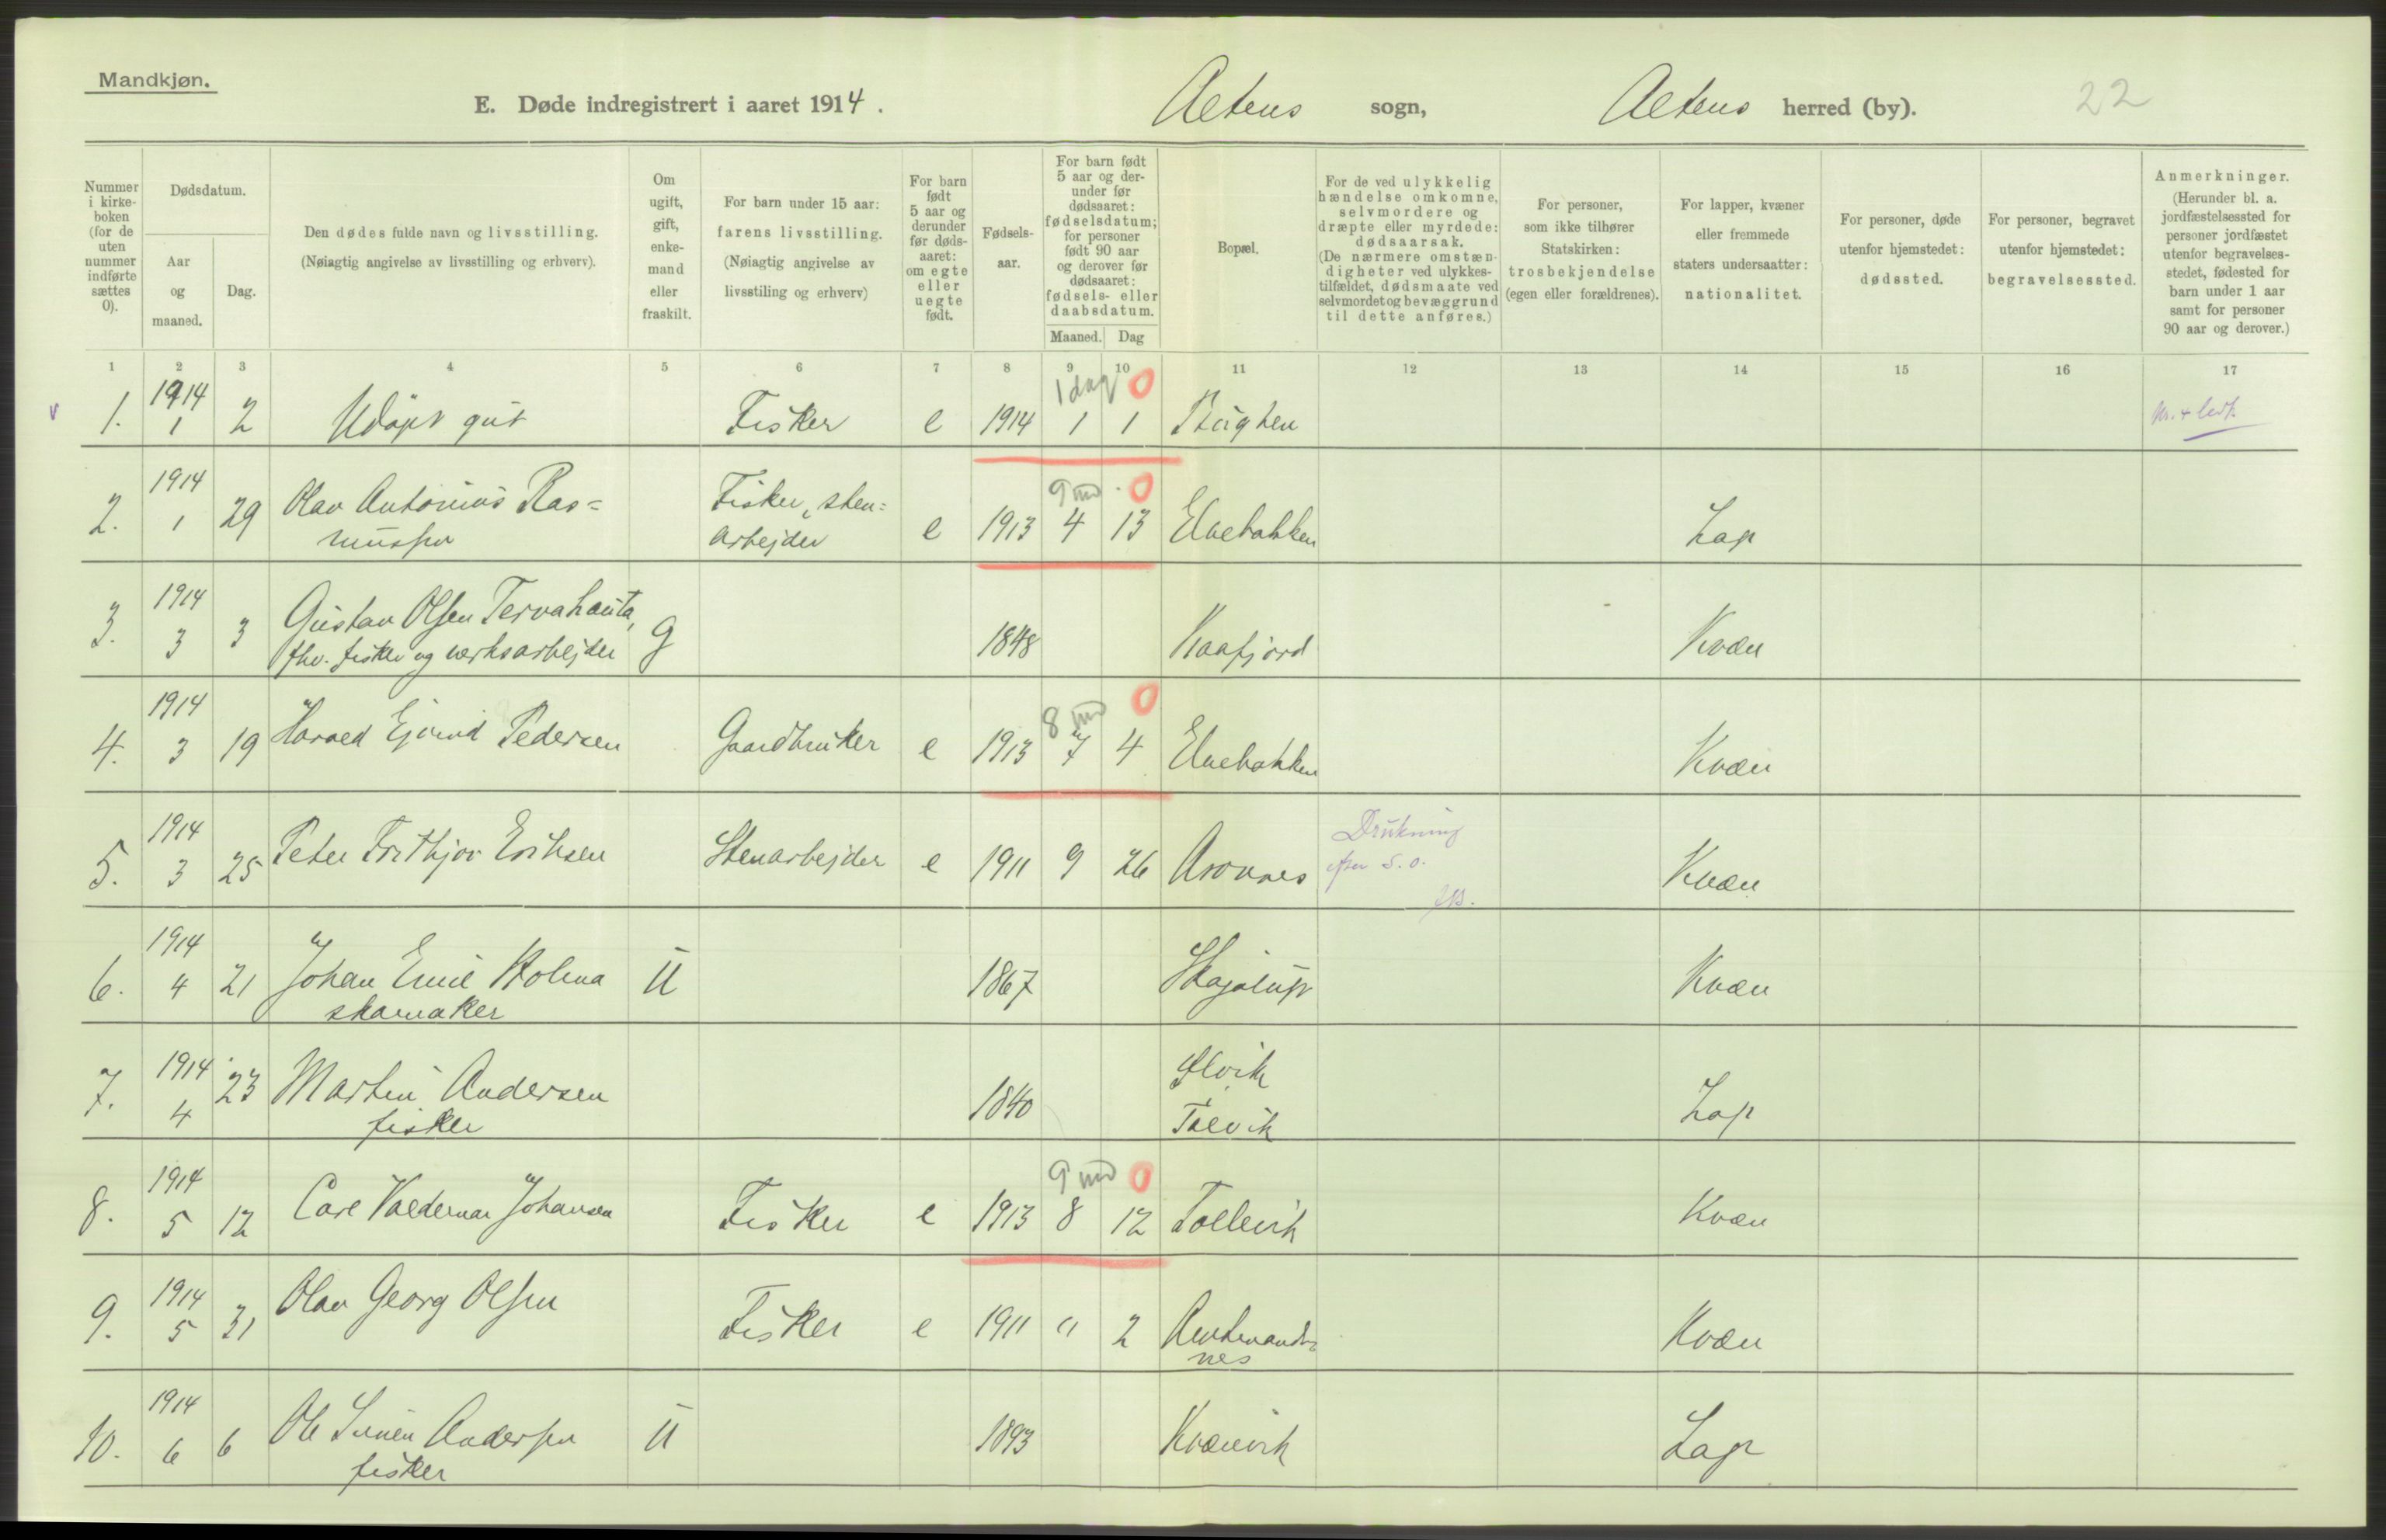 Mandkjøn.
E. Døde indregistrert i aaret 1914. Altens sogn, Altens herred (by). 22
Nummer i kirkeboken (for de uten nummer indførte sættes 0).
Dødsdatum.
Aar og maaned.
Dag.
Den dødes fulde navn og livsstilling.
(Nøiagtig angivelse av livsstilling og erhverv).
Om ugift, gift, enkemand eller fraskilt.
For barn under 15 aar: farens livsstilling.
(Nøiagtig angivelse av livsstiling og erhverv)
For barn født 5 aar og derunder før dødsaaret: om egte eller uegte født.
Fødselsaar.
For barn født 5 aar og derunder før dødsaaret: fødselsdatum; for personer født 90 aar og derover før dødsaaret: fødsels- eller daabsdatum.
Maaned. Dag
Bopæl.
For de ved ulykkelig hændelse omkomne, selvmordere og dræpte eller myrdede: dødsaarsak.
(De nærmere omstændigheter ved ulykkestilfældet, dødsmaate ved selvmordet og bevæggrund til dette anføres.)
For personer, som ikke tilhører Statskirken: trosbekjendelse (egen eller forældrenes).
For lapper, kvæner eller fremmede staters undersaatter: nationalitet.
For personer, døde utenfor hjemstedet: dødssted.
For personer, begravet utenfor hjemstedet: begravelsessted.
Anmerkninger.
(Herunder bl. a. jordfæstelsessted for personer jordfæstet utenfor begravelsesstedet, fødested for barn under 1 aar samt for personer 90 aar og derover.)
1 2 3 4 5 6 7 8 9 10 11 12 13 14 15 16 17
1 dag 0
1. 1914 1 2 Udøpt gut Fisker e 1914 1 1
9 md. 0
2. 1914 1 29 Olav Antonius Ras=
mussen Fisker, sten=
arbejder e 1913 4 13 Elvebakken Lap
3. 1914 3 3 Gustav Olsen Tervahauta,
fhv. fisker og verksarbejder g 1848 Kaafjord Kvæn
8 md 0
4. 1914 3 19 Harald Ejvind Pedersen Gaardbruker e 1913 7 4 Elvebakken Kvæn
5. 1914 3 25 Peter Frithjov Eriksen Stenarbejder e 1911 9 26 Aronnes Drukning
S. O. Kvæn
6. 1914 4 21 Johan Emil Holma
skomaker U 1867 Kvæn
7. 1914 4 23 Martin Andersen
fisker 1840
Talvik Lap
9 md 0
8. 1914 5 12 Carl Valdemar Johansen Fisker e 1913 8 12 Tollevik Kvæn
9. 1914 5 31 Olav Georg Olsen Fisker e 1911 11 2
nes Kvæn
10. 1914 6 6 Ole Andersen
fisker U 1893 Kvænvik Lap